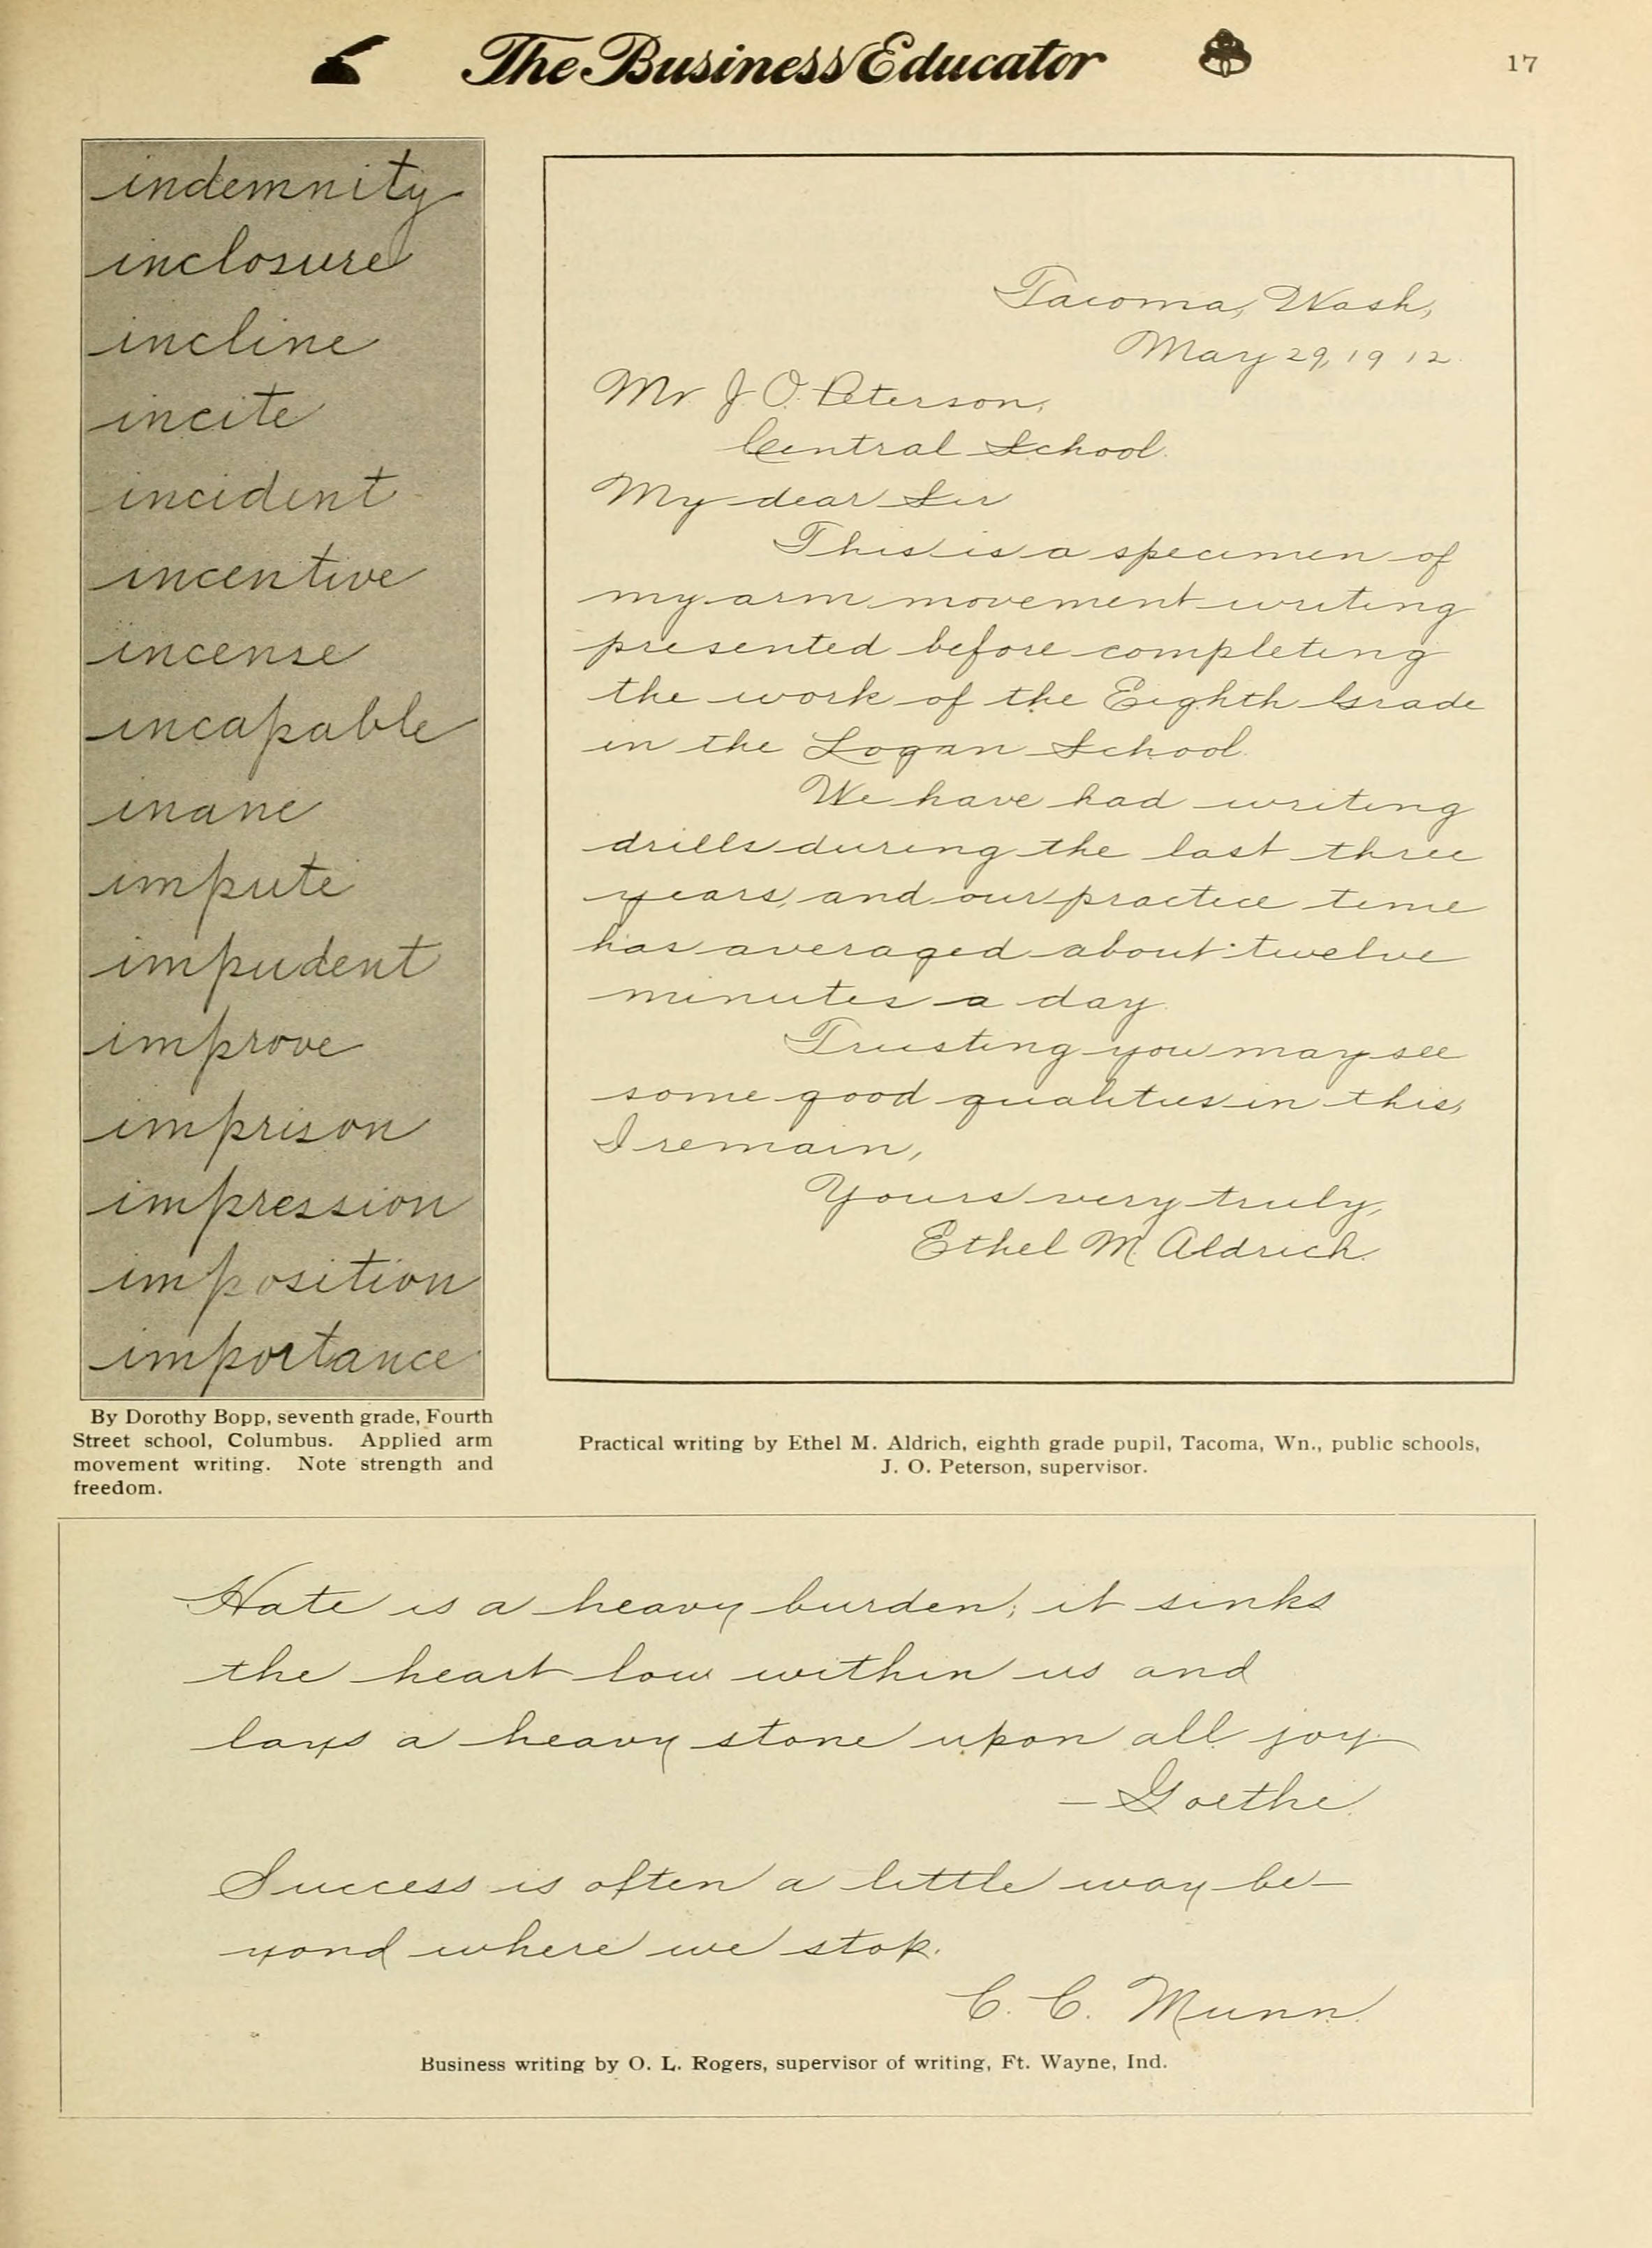 The Business Educator
17
indemnity
inclosure
incline
incite
incident
incentive
incense
incapable
inane
impute
impudent
improve
imprison
impression
imposition
importance
By Dorothy Bopp, seventh grade, Fourth
Street school, Columbus. Applied arm
movement writing. Note strength and
freedom.
Tacoma, Wash,
May 29, 1912.
Mr. J. O. Peterson,
Central School.
My dear Sir
This is a specimen of
my arm movement writing
presented before completing
the work of the Eighth Grade
in the Logan School.
We have had writing
drills during the last three
years, and our practice time
has averaged about twelve
minutes a day.
Trusting you may see
some good qualities in this,
I remain,
Yours very truly,
Ethel M. Aldrich.
Practical writing by Ethel M. Aldrich, eighth grade pupil, Tacoma, Wn., public schools,
J. O. Peterson, supervisor.
Hate is a heavy burden; it sinks
the heart low within us and
lays a heavy stone upon all joy
— Goethe.
Success is often a little way be-
yond where we stop.
C. C. Munn.
Business writing by O. L. Rogers, supervisor of writing, Ft. Wayne, Ind.